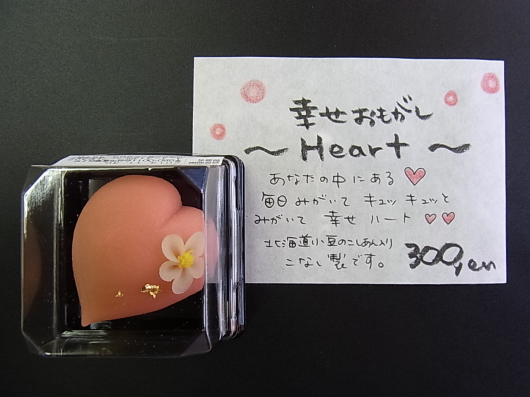 幸せおもがし
～Heart～
あなたの中にある♥
毎日みがいて キュッ キュッと
みがいて 幸せ ハート ♥♥
北海道小豆のこしあん入り
こなし製です。
300yen